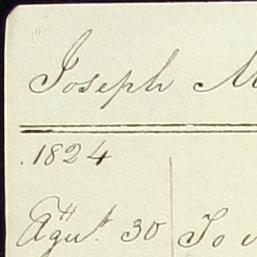 Joseph M
1824
Agust 30 To